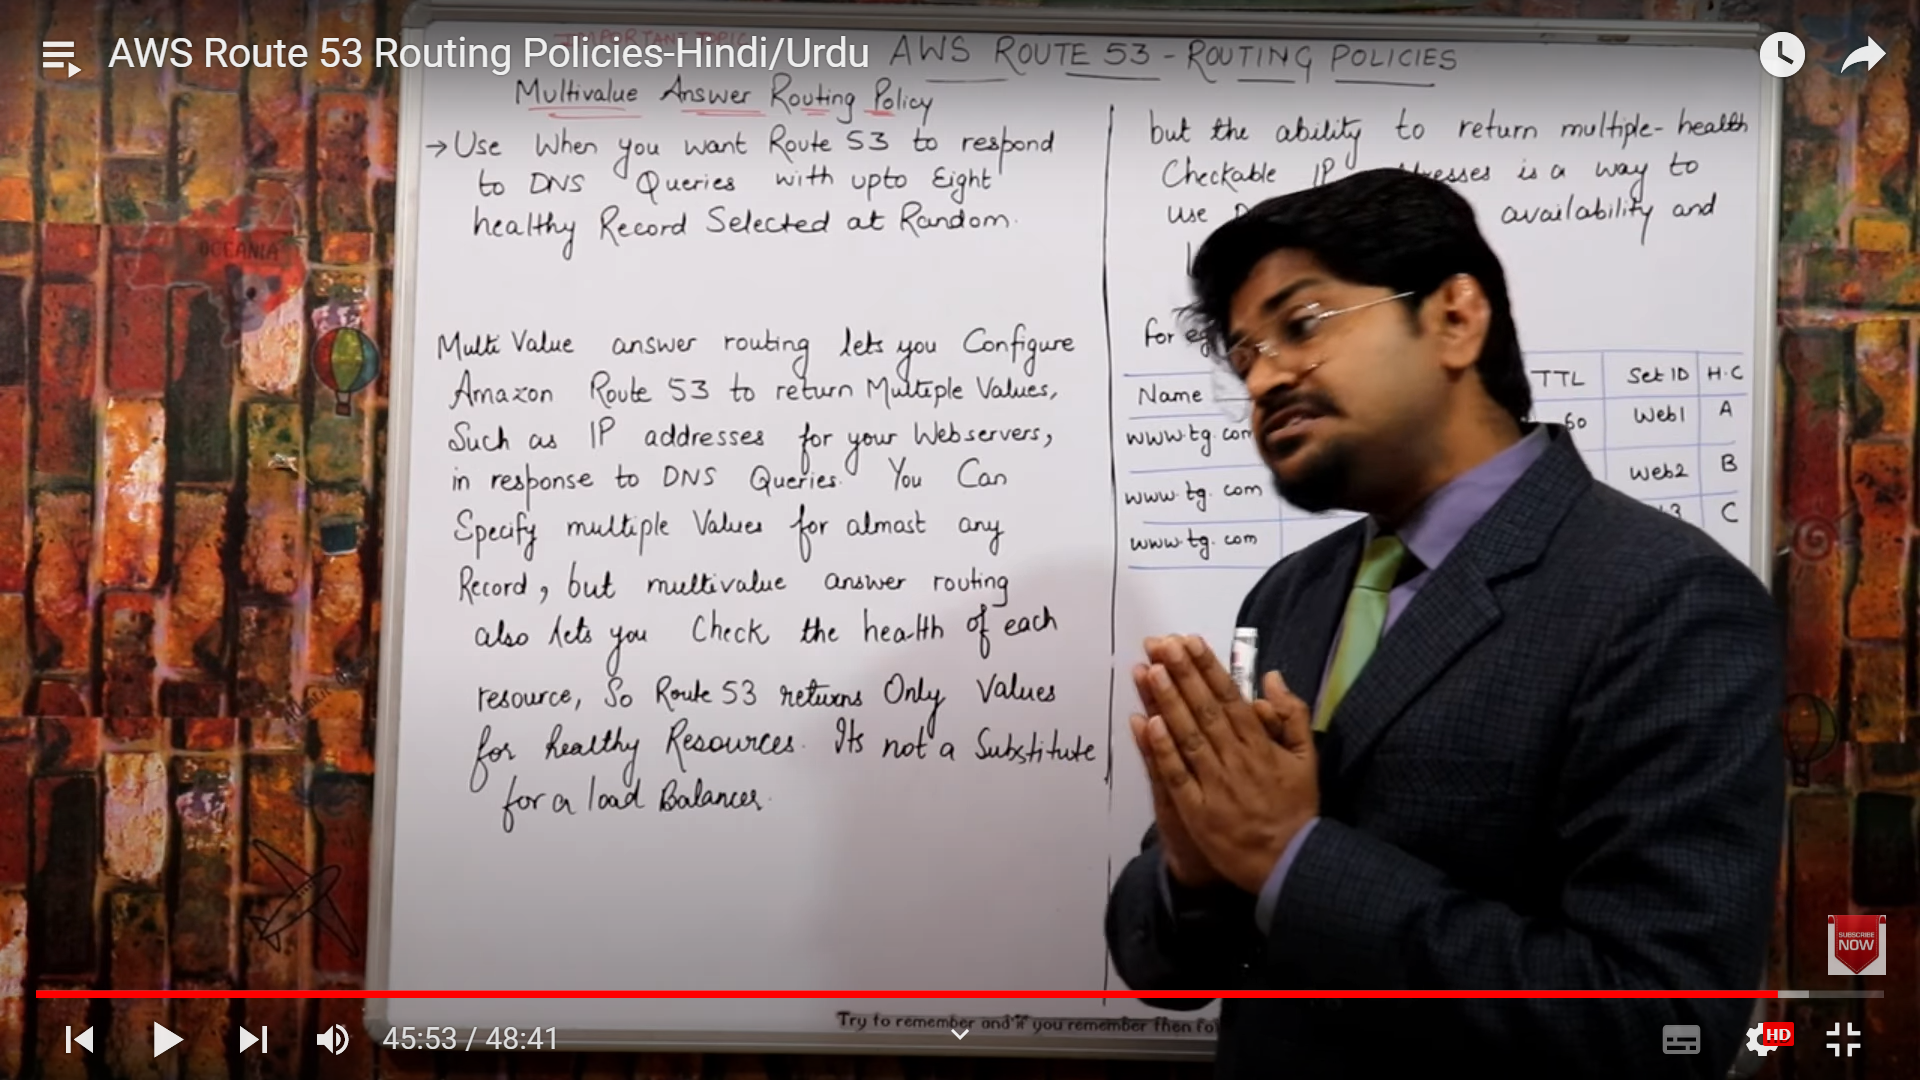 AWS Route 53 Routing Policies-Hindi/Urdu
IMPORTANT TOPIC
AWS ROUTE 53 - ROUTING POLICIES
Multivalue Answer Routing Policy
→ Use When you want Route 53 to respond
to DNS Queries with upto Eight
healthy Record Selected at Random.
Multi Value answer routing lets you Configure
Amazon Route 53 to return Multiple Values,
Such as IP addresses for your Webservers,
in response to DNS Queries. You Can
Specify multiple Values for almost any
Record, but multivalue answer routing
also lets you Check the health of each
resource, So Route 53 returns Only Values
for healthy Resources. Its not a Substitute
for a load Balancer.
but the ability to return multiple-health
Checkable IP is a way to
use availability and
for eg
Name TTL Set ID H.C
www.tg.com 60 Web1 A
www.tg.com Web2 B
www.tg.com C
OCEANIA
Try to remember and if you remember then
SUBSCRIBE
NOW
45:53 / 48:41
HD